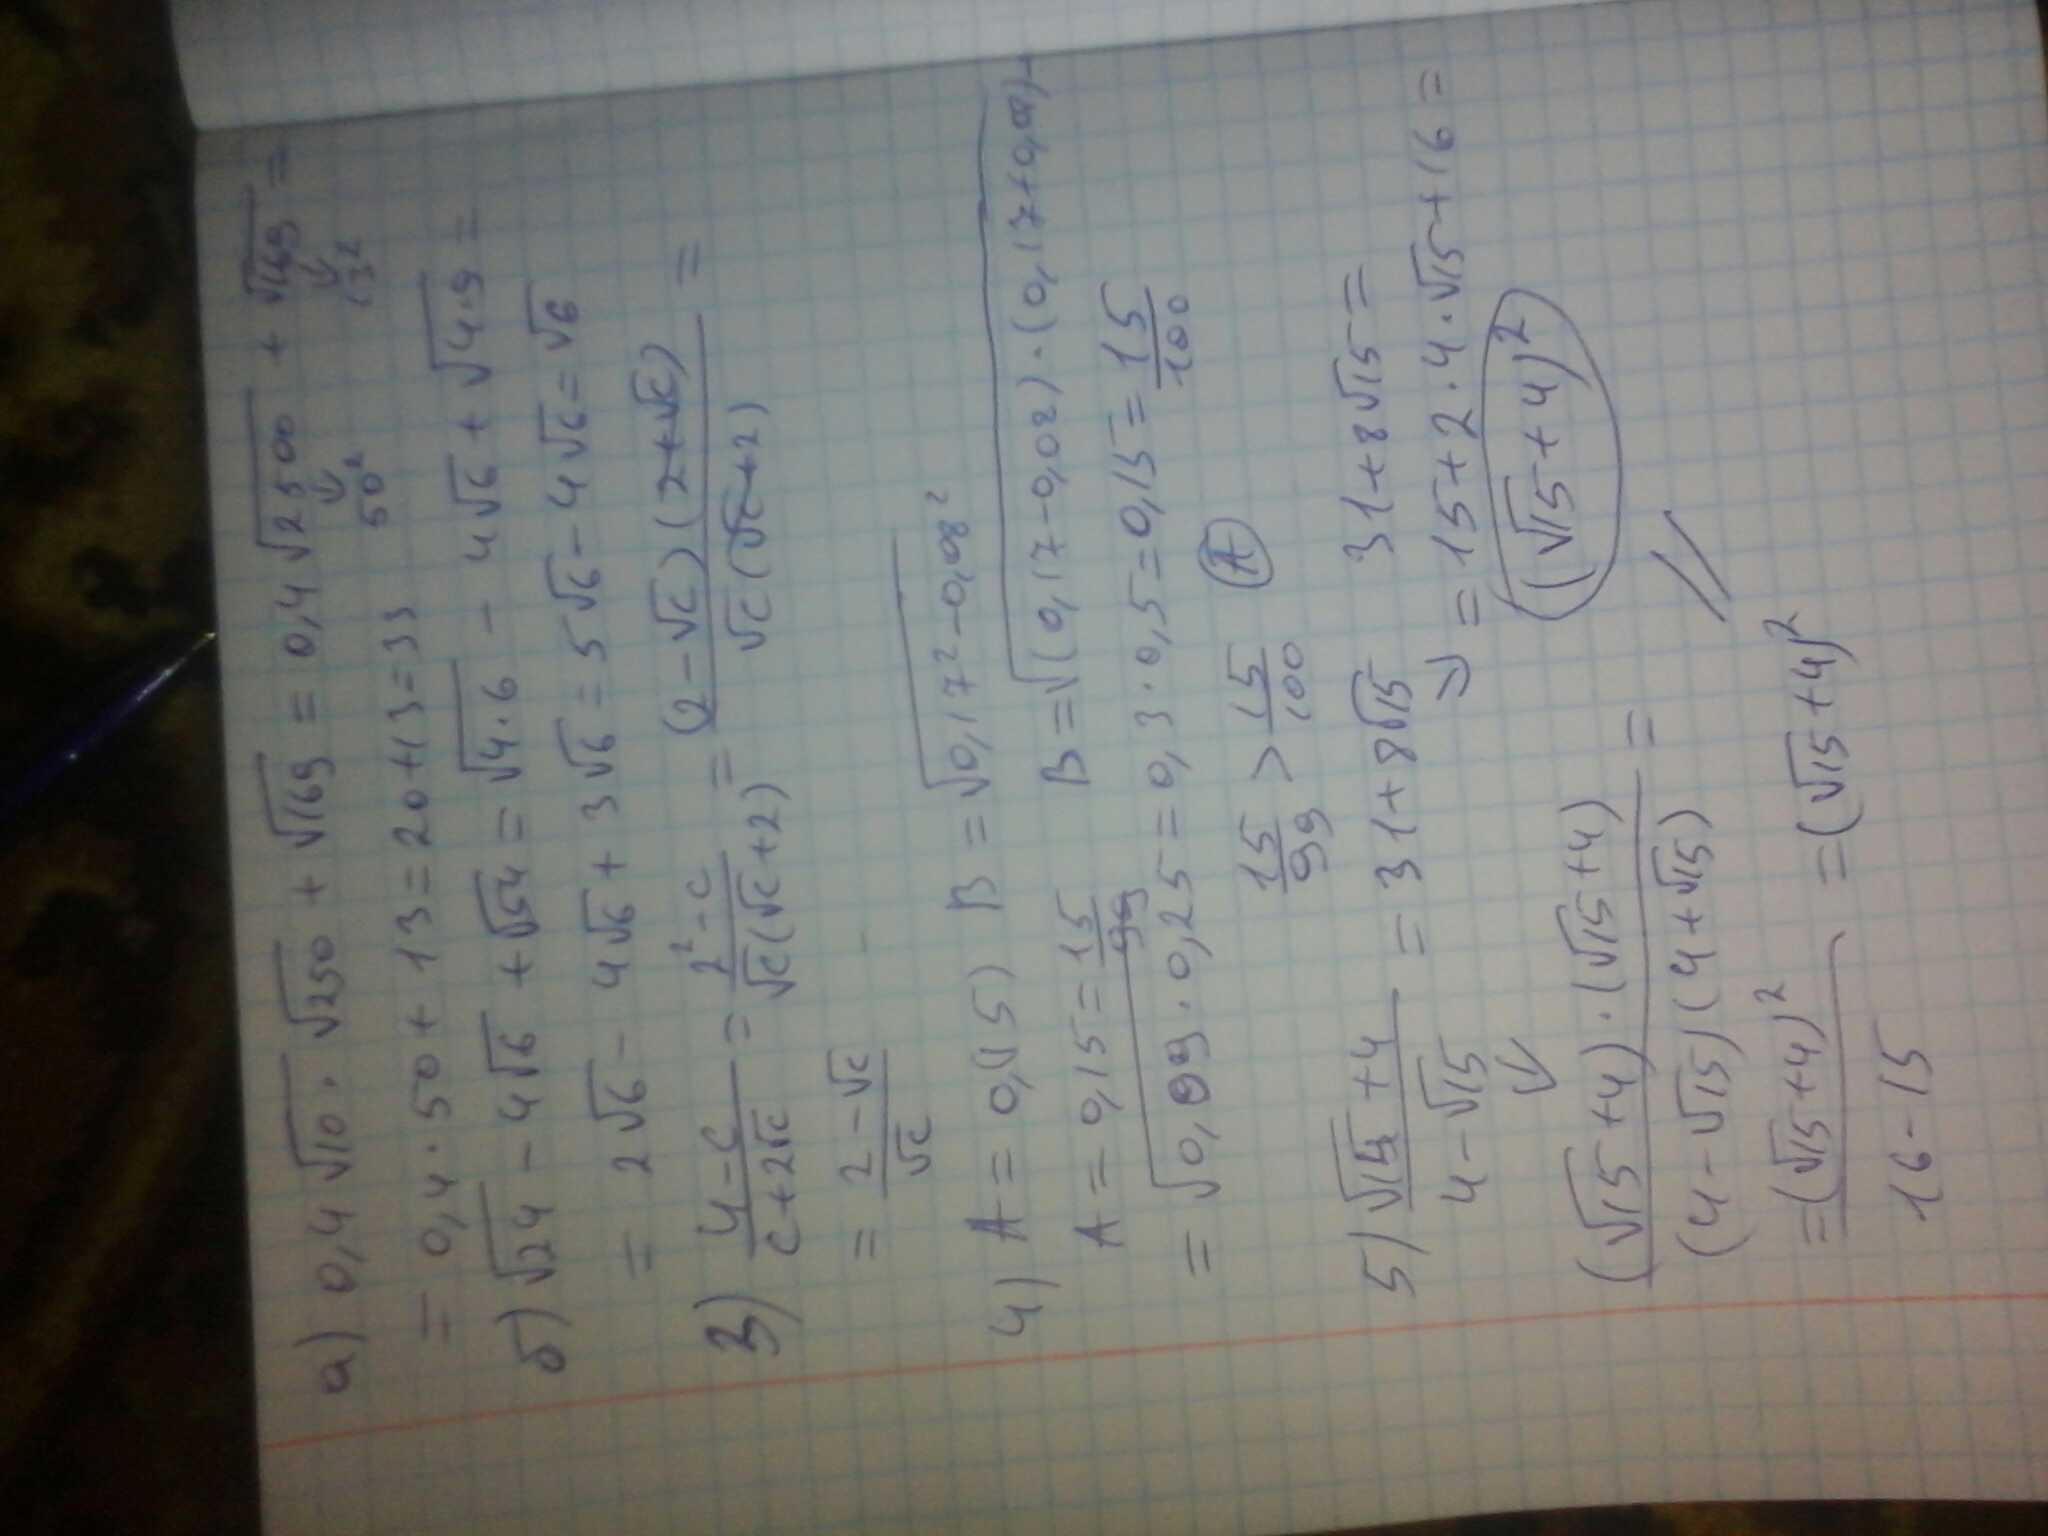 а) 0,4√10 · √250 + √169 = 0,4√2500 + √169 =
↓ 50² ↓ 13²
= 0,4 · 50 + 13 = 20 + 13 = 33
б) √24 - 4√6 + √54 = √4·6 - 4√6 + √4·9 =
= 2√6 - 4√6 + 3√6 = 5√6 - 4√6 = √6
3) (4-c)/(c+2√c) = (2²-c)/(√c(√c+2)) = ((2-√c)(2+√c))/(√c(√c+2)) =
= (2-√c)/√c
4) A = 0,(15) B = √0,17²-0,08²
A = 0,15 = 15/99 B = √(0,17-0,08)·(0,17+0,08) =
= √0,09 · 0,25 = 0,3 · 0,5 = 0,15 = 15/100
15/99 > 15/100 (A)
5) (√15+4)/(4-√15) = 31+8√15 31+8√15 =
↓ ↓ = 15+2·4·√15+16 =
((√15+4)·(√15+4))/((4-√15)(4+√15)) = (√15+4)²
= (√15+4)²/(16-15) = (√15+4)²